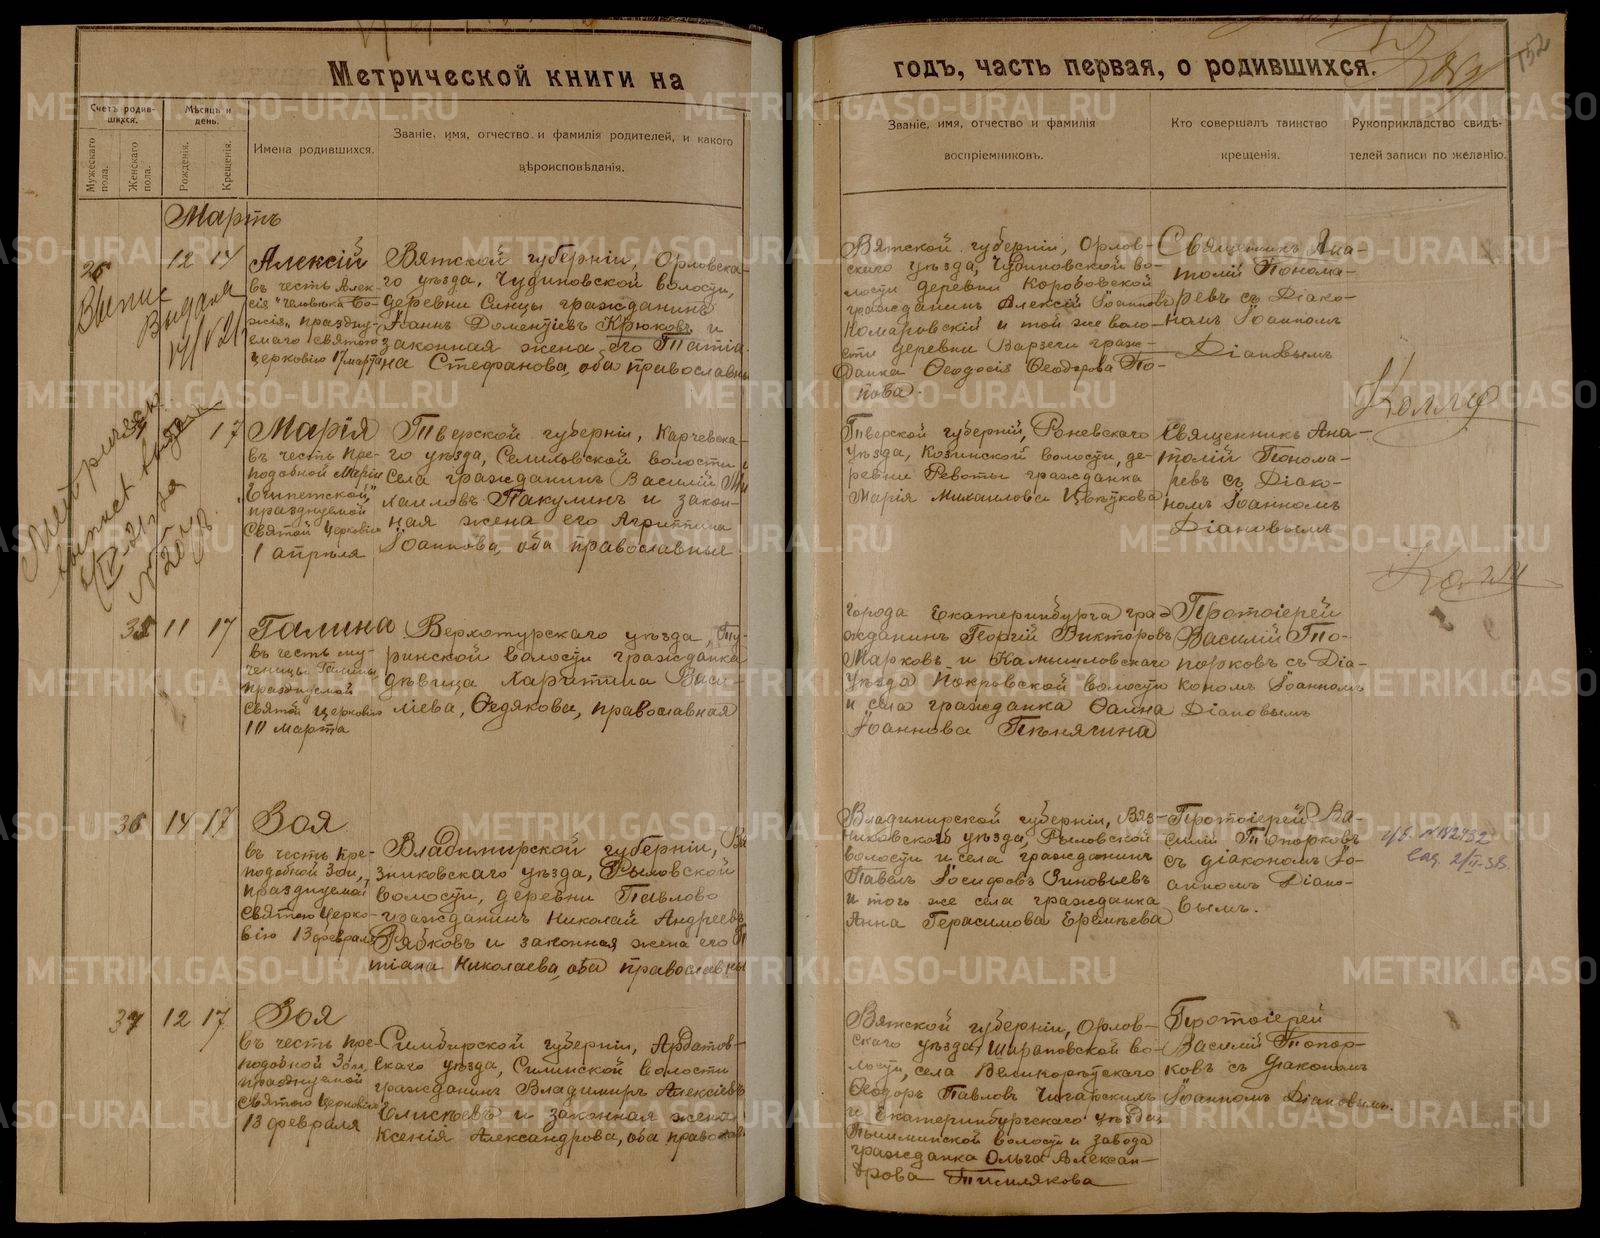 Метрической книги на
годъ, часть первая, о родившихся.
152
Счетъ родив-
шихся.
Мужескаго
пола.
Женскаго
пола.
Мѣсяцъ и
день.
Рожденія.
Крещенія.
Имена родившихся.
Званіе, имя, отчество и фамилія родителей, и какого
вѣроисповѣданія.
Званіе, имя, отчество и фамилія
воспріемниковъ.
Кто совершалъ таинство
крещенія.
Рукоприкладство свидѣ-
телей записи по желанію.
Мартъ
26
12 14
Алексій
въ честь Алек-
сія "человѣка Бо-
жія" праздну-
емаго святою
церковію 17 марта
Вятской губерніи, Орловска-
го уѣзда, Чудиновской волости,
деревни гражданинъ
Іоаннъ Дометіевъ Крюковъ и
законная жена его Татіа
на Стефанова, оба православн
Вятской губерніи, Орлов-
скаго уѣзда, Чудиновской во-
лости деревни Коробовской
гражданинъ Алексій Іоанновъ
Комаровскій и той же воло-
сти деревни граж-
данка Ѳеодосія Ѳеодорова По-
пова.
Священникъ Ана-
толій Понома-
ревъ съ Діако-
номъ Іоанномъ
Діановымъ
Выпис
Выдана
17
Марія
въ честь Пре-
подобной Маріи
"Египетской,"
празднуемой
Святой Церковію
1 апрѣля
Тверской губерніи, Карчевска-
го уѣзда, Селиховской волости и
села гражданинъ Василій Ми
хаиловъ Пакулинъ и закон-
ная жена его Агриппина
Іоаннова, оба православные
Тверской губерніи,
уѣзда, Козинской волости, де-
ревни гражданка
Марія Михаилова Цвѣткова
Священникъ Ана-
толій Понома-
ревъ съ Діако-
номъ Іоанномъ
Діановымъ
35 11 17
Галина
въ честь му-
ченицы Галины
празднуемой
святой церковію
10 марта
Верхотурскаго уѣзда, Ту-
ринской волости гражданка
дѣвица Харитина Васи-
ліева, Федякова, православная
города Екатеринбурга гра-
жданинъ Георгій Викторовъ
Марковъ и Камышловскаго
уѣзда Покровской волости
и села гражданка Фаина
Іоаннова Пѣнягина
Протоіерей
Василій То-
порковъ съ Діа-
кономъ Іоанномъ
Діановымъ
36 14 17
Зоя
въ честь Пре-
подобной Зои,
празднуемой
Святою Церко-
вію 13 февраля
Владимирской губерніи, Вя
зниковскаго уѣзда, Рыловской
волости, деревни Павлово
гражданинъ Николай Андреевъ
Рябковъ и законная жена его Т
тіана Николаева, оба православны
Владимирской губерніи, Вяз-
никовскаго уѣзда, Рыловской
волости и села гражданинъ
Павелъ Іосифовъ Зиновьевъ
и того же села гражданка
Анна Герасимова Еремѣева
Протоіерей Ва-
силій Топорковъ
съ діакономъ Іо-
анномъ Діано-
вымъ.
37 12 17
Зоя
въ честь Пре-
подобной Зои,
празднуемой
святою церковію
13 февраля
Симбирской губерніи, Ардатов-
скаго уѣзда, Силинской волости
гражданинъ Владимиръ Алексіевъ
Елисѣевъ и законная жена
Ксенія Александрова, оба православ
Вятской губерніи, Орлов-
скаго уѣзда, во-
лости, села Великорѣцкаго
Ѳеодоръ Павловъ
и Екатеринбургскаго уѣзда,
Пышминской волости и завода
гражданка Ольга Алексан-
дрова
Протоіерей
Василій Топор-
ковъ съ діакономъ
Іоанномъ Діановымъ.
METRIKI.GASO-URAL.RU